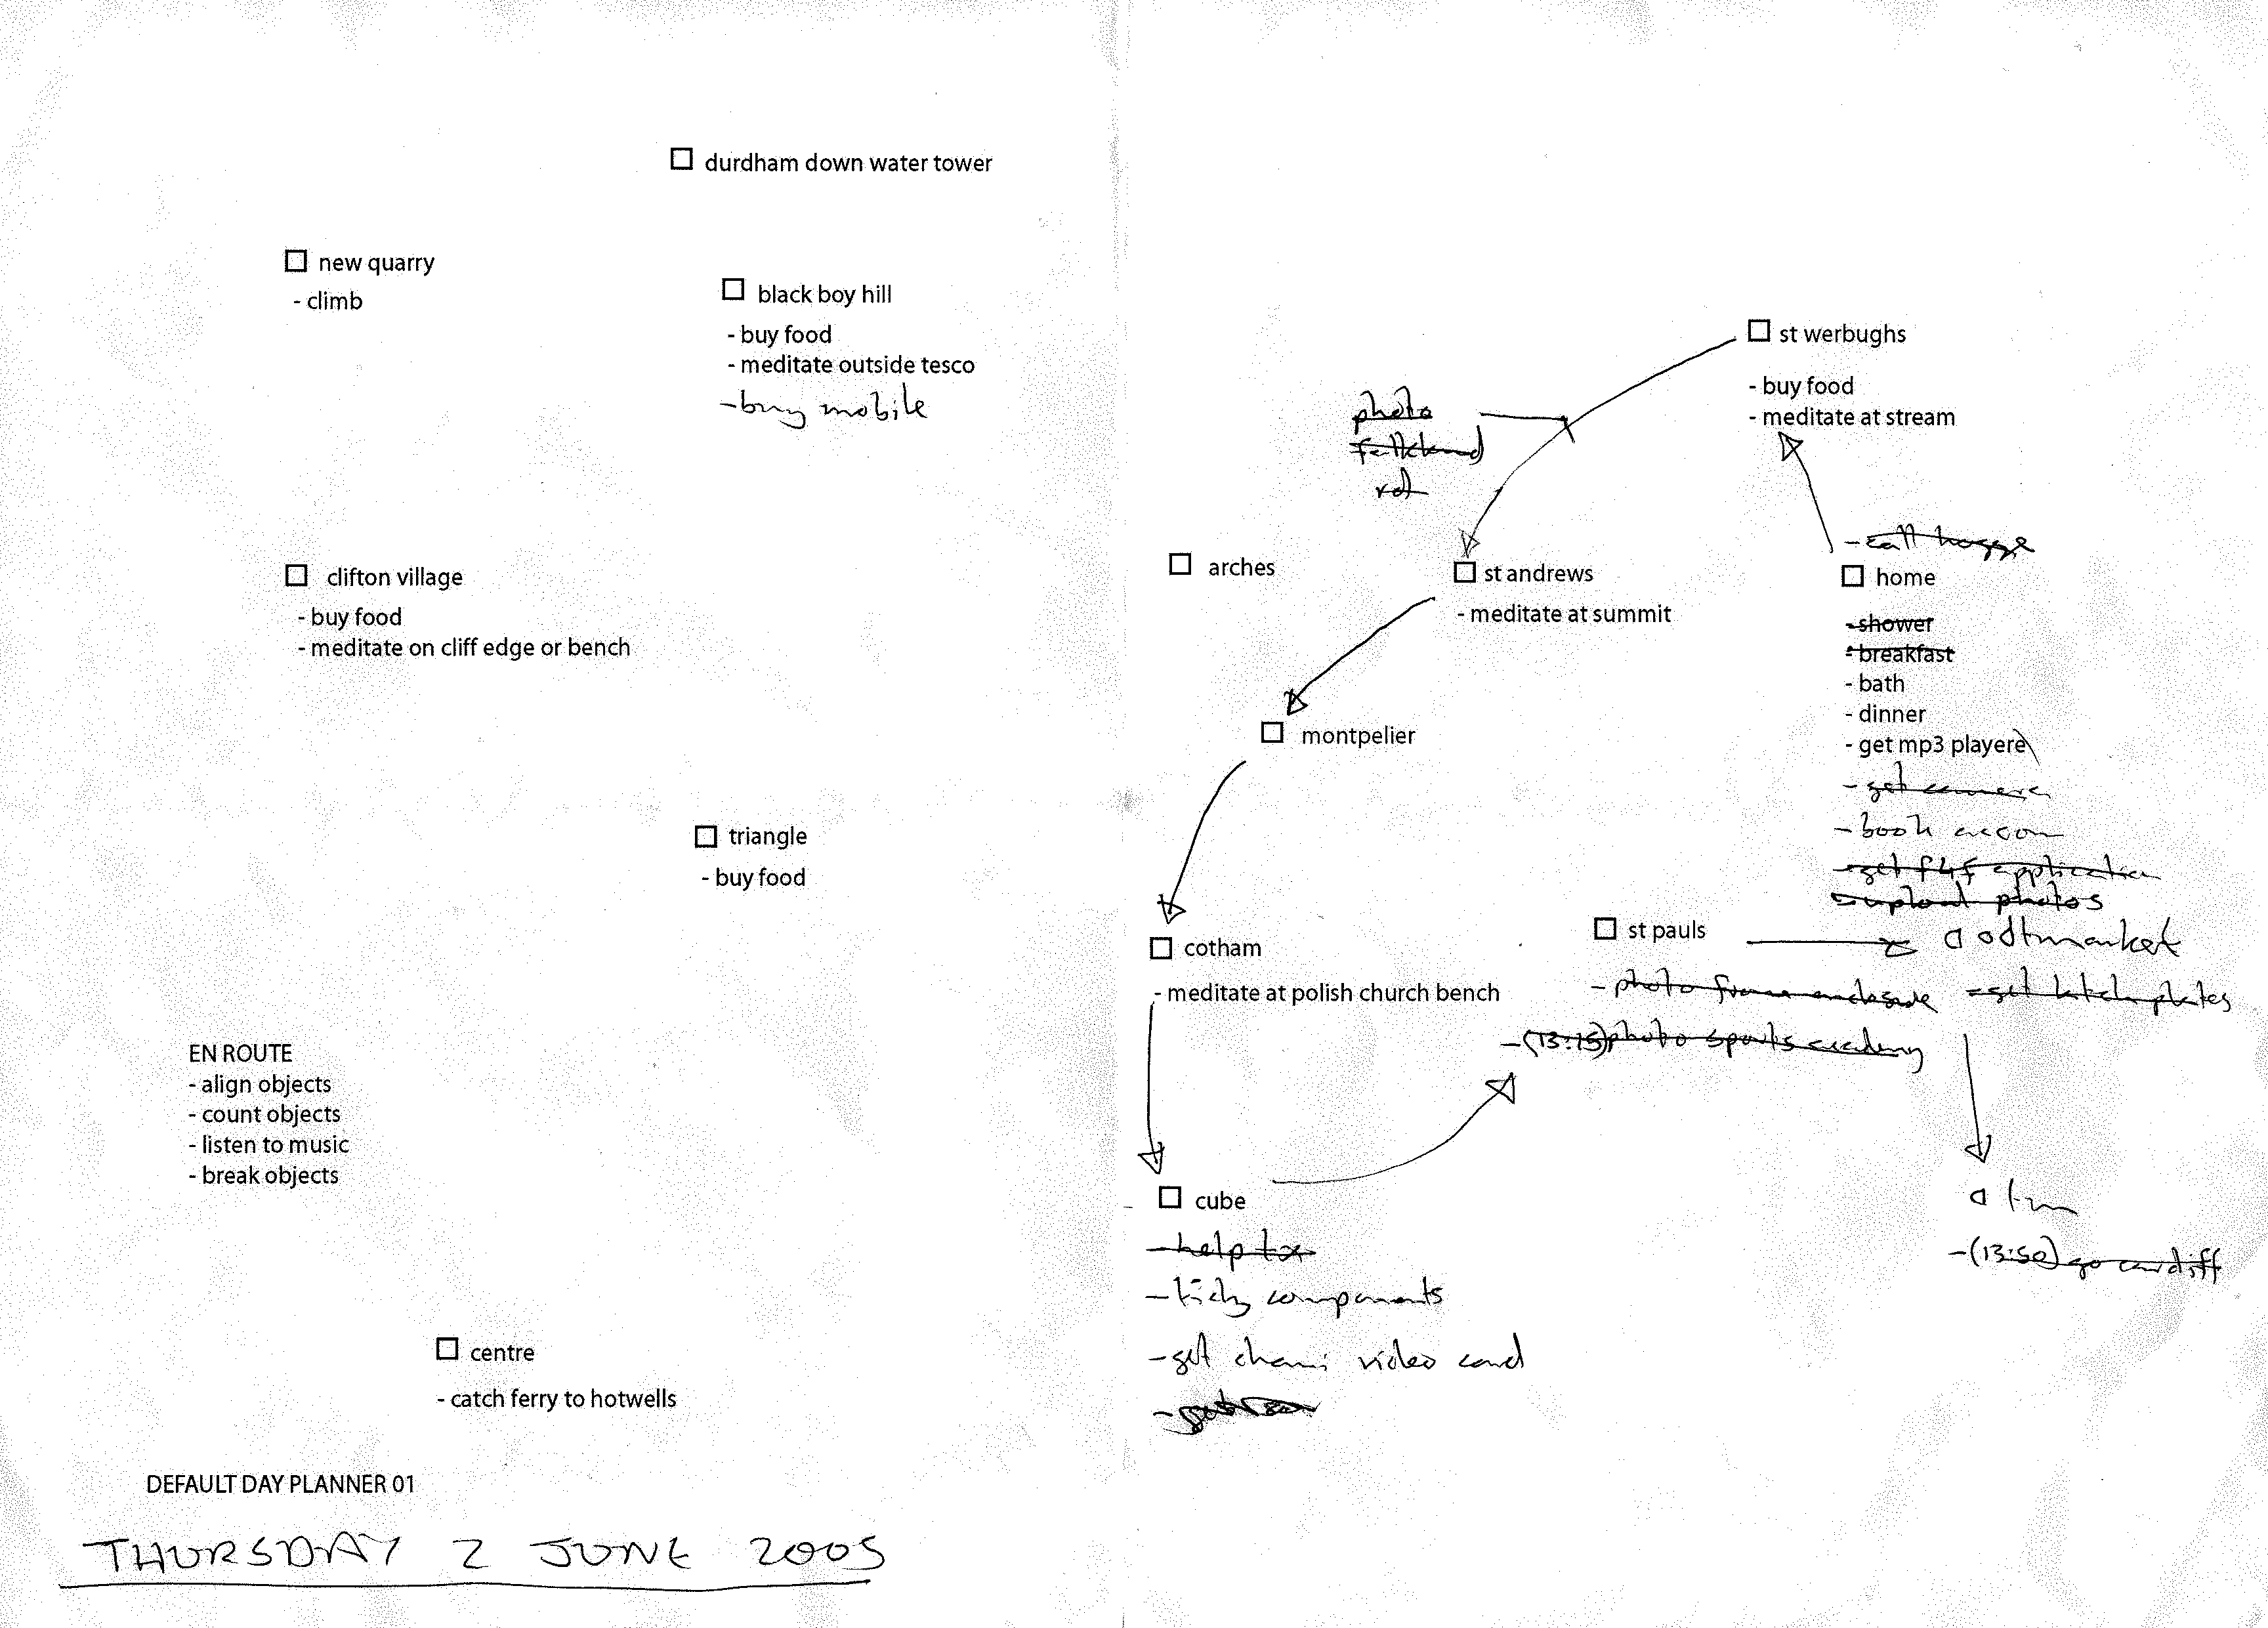 durdham down water tower
new quarry
- climb
black boy hill
- buy food
- meditate outside tesco
- buy mobile
clifton village
- buy food
- meditate on cliff edge or bench
triangle
- buy food
EN ROUTE
- align objects
- count objects
- listen to music
- break objects
centre
- catch ferry to hotwells
DEFAULT DAY PLANNER 01
THURSDAY 2 JUNE 2005
st werbughs
- buy food
- meditate at stream
photo
falkland
rd
arches
st andrews
- meditate at summit
- call hogge
home
- shower
- breakfast
- bath
- dinner
- get mp3 playere
- get camera
- book accom
- get f4f application
- upload photos
montpelier
cotham
- meditate at polish church bench
st pauls
- photo from
- (13:15) photo sports academy
oldmarket
- get ketch plates
cube
- help
- tidy components
- get video card
- (13:50) go cardiff